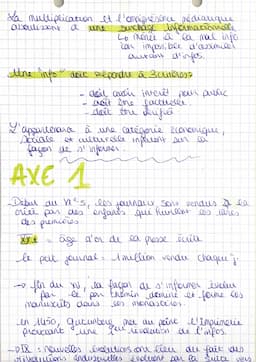 La multiplication et l'omniprésence médiatique
aboutissent à une surcharge informationnelle
↳ mène à la mal info
car impossible d'assimiler
autant d'infos.
Une info doit répondre à 3 critères:
- doit avoir intérêt pour public
- doit être factuelle
- doit être vérifiée
L'appartenance à une catégorie économique,
sociale et culturelle influent sur la
façon de s'informer.
AXE 1
- Début du XXe s, les journaux sont vendus à la
criée par des enfants qui hurlent les titres
des premières
XXe = âge d'or de la presse écrite
- le petit journal = 1 million vendu chaque j.
→ fin du la façon de s'informer évolue
car le par chemin domine et forme les
manuscrits dans les monastères.
- en 1450, Gutenberg met au point l'imprimerie
provoquant une révolution de l'infos
- XIX : nouvelles évolutions ont lieu du fait des
révolutions industrielles évoluent par la suite vers